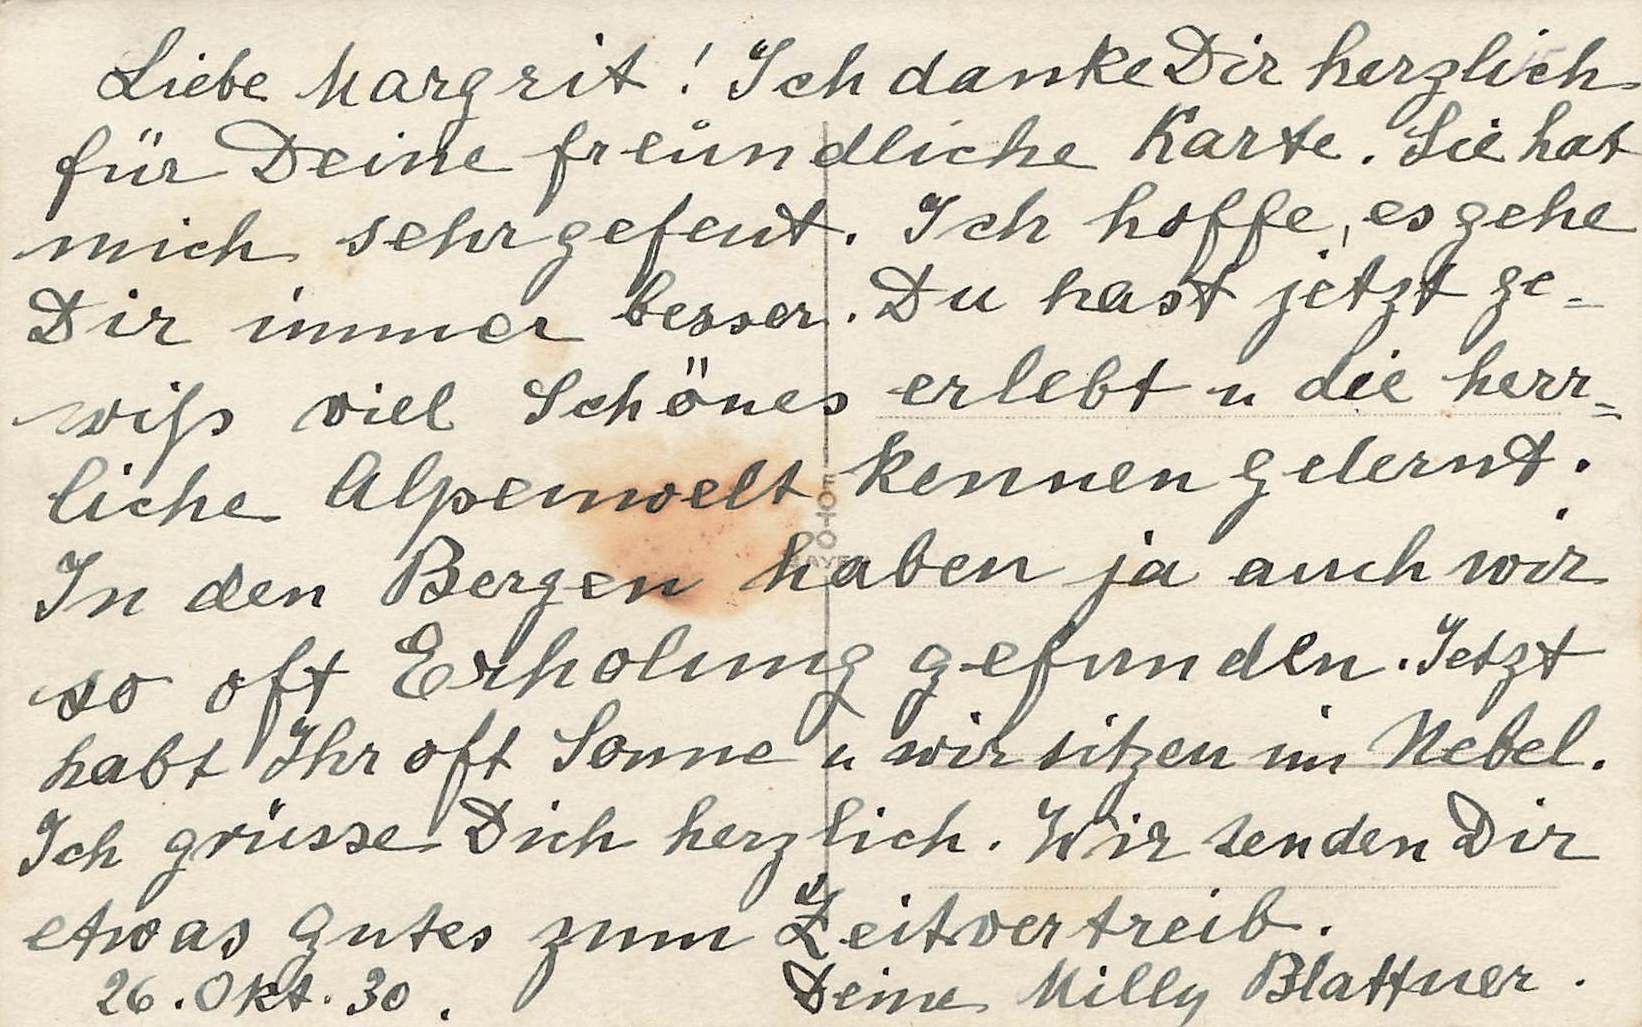 Liebe Margrit! Ich danke Dir herzlich
für Deine freundliche Karte. Sie hat
mich sehr gefeut. Ich hoffe, es gehe
Dir immer besser. Du hast jetzt ge-
wiss viel Schönes erlebt u die herr-
liche Alpenwelt kennen gelernt.
In den Bergen haben ja auch wir
so oft Erholung gefunden. Jetzt
habt Ihr oft Sonne u wir sitzen im Nebel.
Ich grüsse Dich herzlich. Wir senden Dir
etwas gutes zum Zeitvertreib.
26. Okt. 30. Deine Milly Blattner.